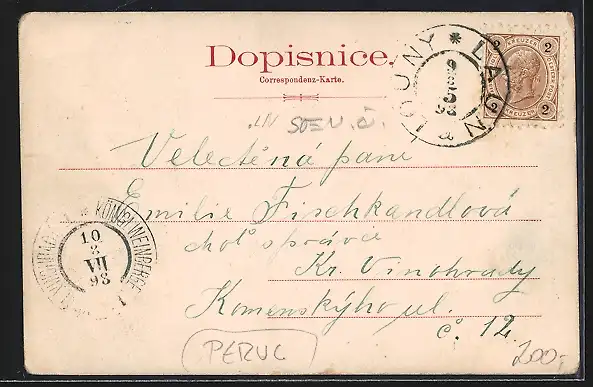 Dopisnice.
Correspondenz-Karte.
LOUNY * LAUN
9
5
98
2 2
KREUZER
2 2
Velectěná paní
Emilie Fischkandlová
choť správce
Kr. Vinohrady
Komenskýho ul.
č. 12.
KÖNIGL. WEINBERGE
10
VII
98
PERUC
200,-